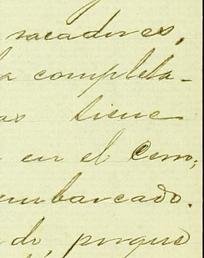 sacadores,
a completa-
as tiene
en el Cerro,
embarcado.
do, porque